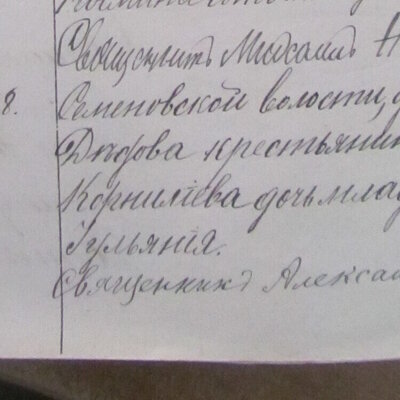 Священникъ Михаилъ Н
8. Семеновской волости, д
Дѣдова крестьянин
Корнилiева дочь млад
Iульянiя.
Священникъ Алекса